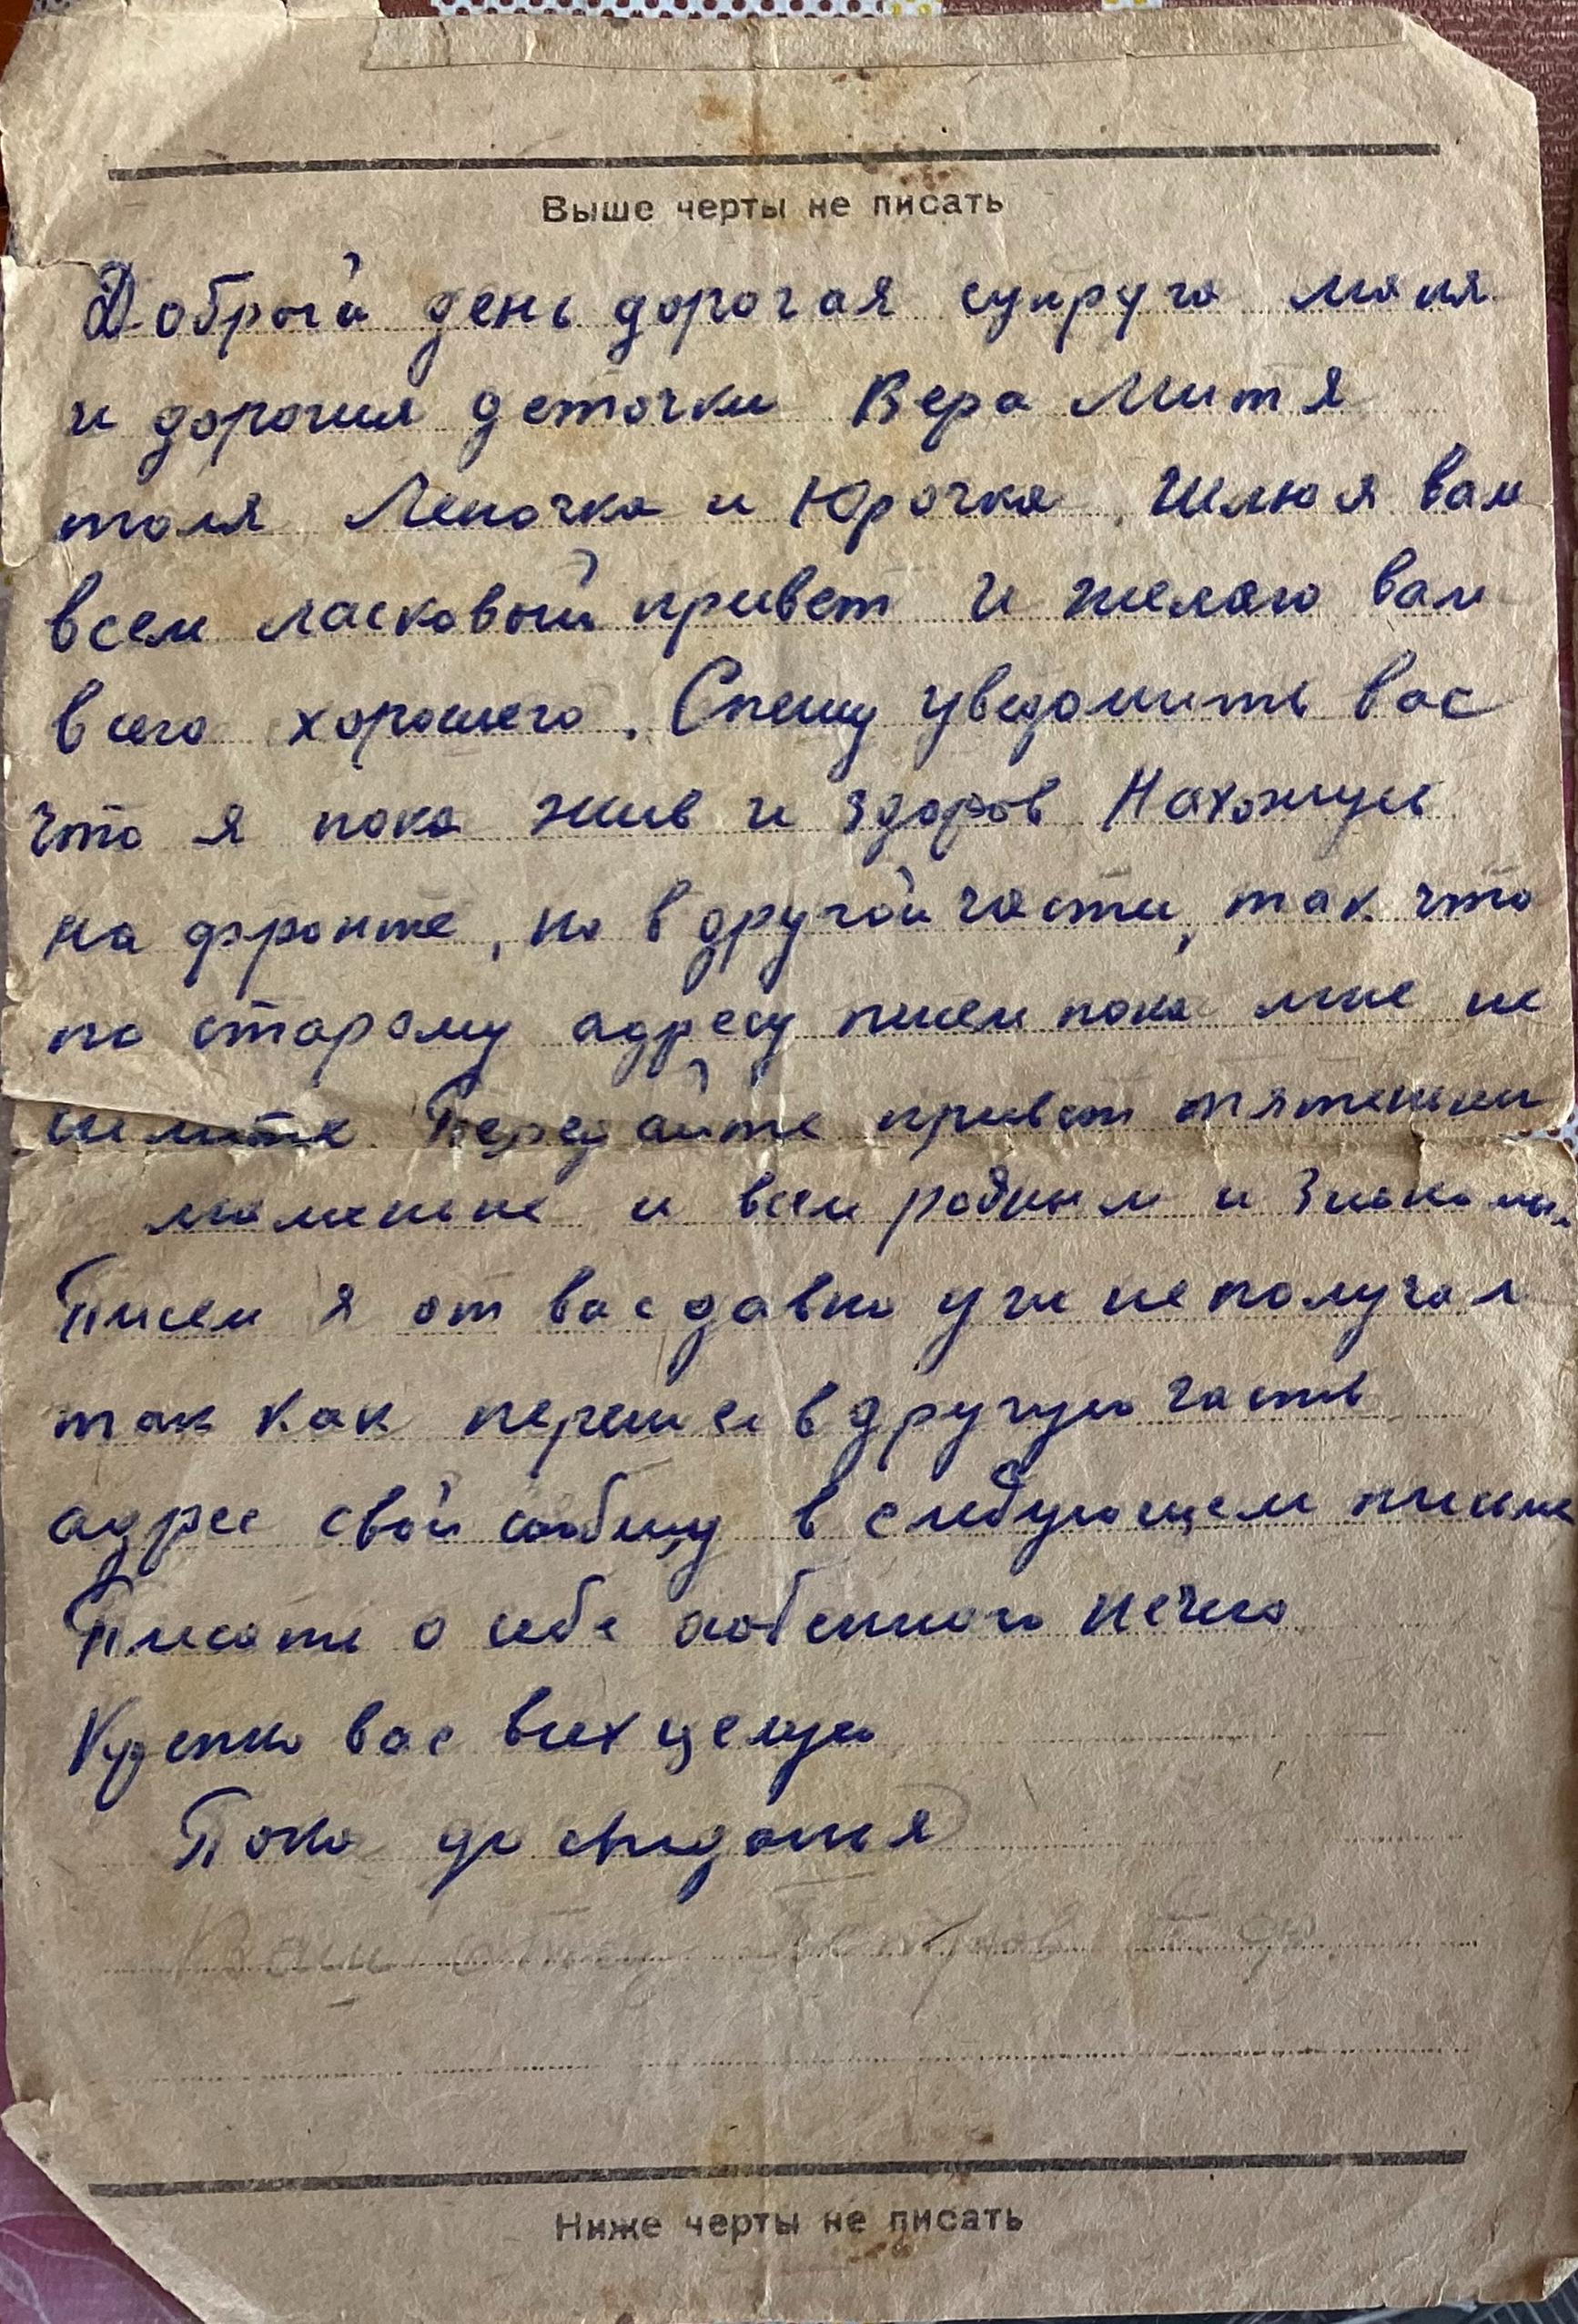 Выше черты не писать
Добрый день дорогая супруга маня
и дорогия деточки Вера Митя
толя Леночка и Юрочка. Шлю я вам
всем ласковый привет и желаю вам
всего хорошего. Спешу уведомить вас
что я пока жив и здоров Нахожусь
на фронте, но в другой части, так что
по старому адресу писем пока мне не
шлите. Передайте привет тятеньки
маменьке и всем родным и знакомым
Писем я от вас давно уже не получал
так как перешел в другую часть
адрес свой сообщу в следующем письме
Писать о себе особенного нечего
Крепко вас всех целую
Пока до свидания
Ваш отец
Ниже черты не писать